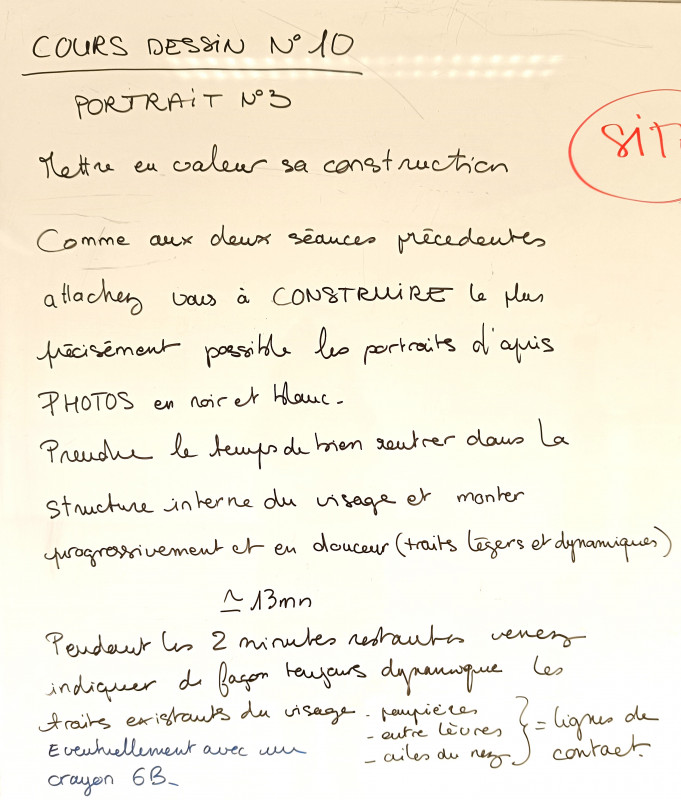 COURS DESSIN N° 10
PORTRAIT N°3
SIT
Mettre en valeur sa construction
Comme aux deux séances précedentes
attachez vous à CONSTRUIRE le plus
précisément possible les portraits d'apris
PHOTOS en noir et blanc -
Prendre le temps de bien rentrer dans la
structure interne du visage et monter
progressivement et en douceur (traits légers et dynamiques)
~ 13mn
Pendant les 2 minutes restantes venez
indiquer de façon toujours dynamique les
traits existants du visage - paupières
- entre lèvres
- ailes du nez
} = lignes de
contact.
Eventuellement avec un
crayon 6B -